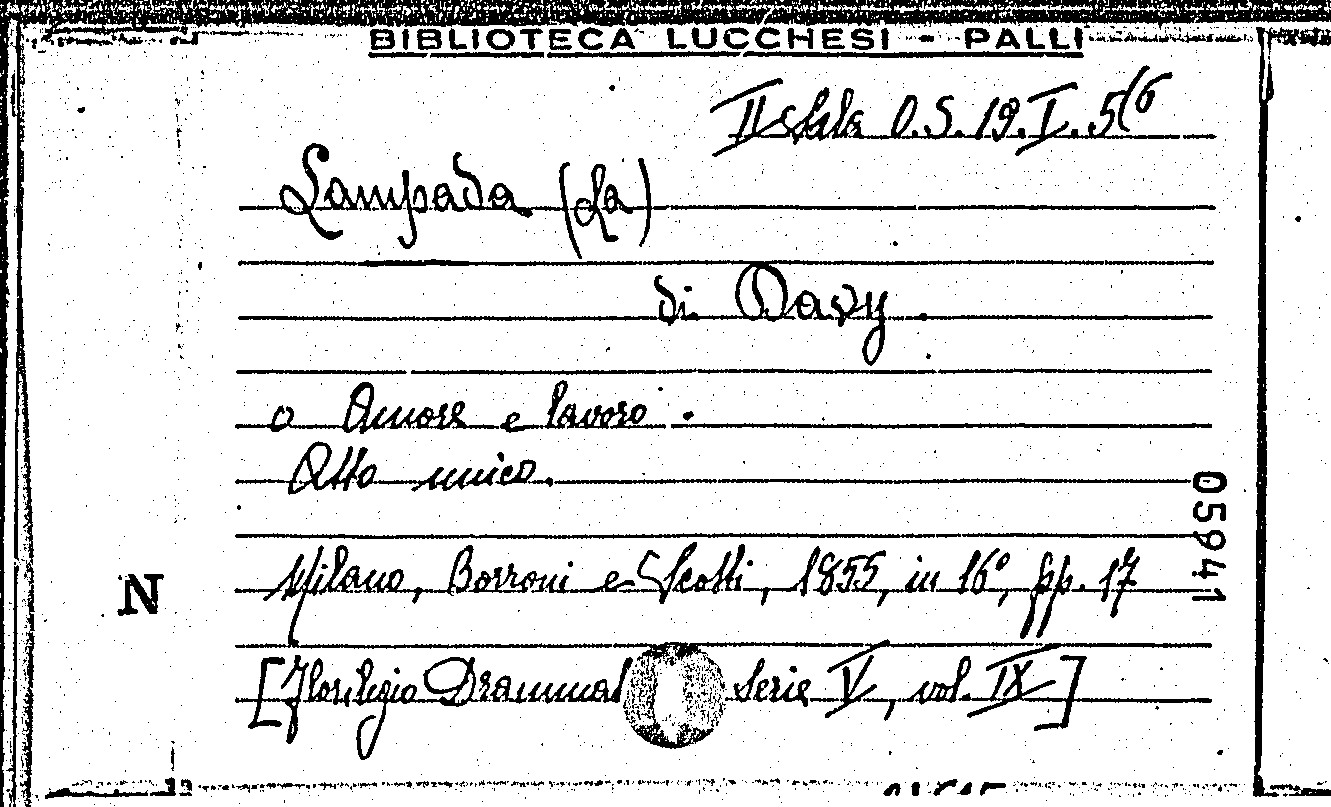 BIBLIOTECA LUCCHESI - PALLI
II Sala O.S. 19. I. 5(6
Lampada (La)
di Davy.
o Amore e lavoro.
Atto unico.
05941
N
Milano, Borroni e Scotti, 1855, in 16°, pp. 17
[Florilegio Drammat Serie V, vol. IX]